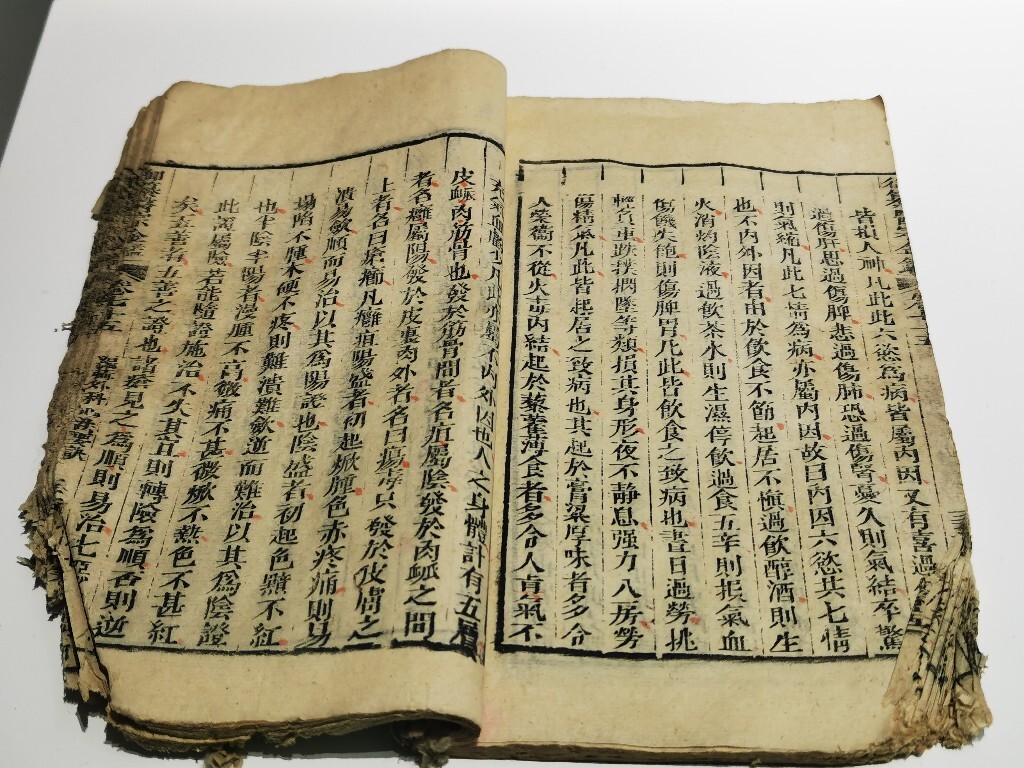 皆損人神凡此六慾為病皆屬內因又有喜過
過傷肝思過傷脾悲過傷肺恐過傷腎憂久則氣結卒驚
則氣縮凡此七情為病亦屬內因故曰內因六慾共七情
也不內外因者由於飲食不節起居不慎過飲醇酒則生
火消灼陰液過飲茶水則生濕停飲過食五辛則損氣血
傷饑失飽則傷脾胃凡此皆飲食之致病也晝日過勞挑
輕負重跌撲閃墜等類損其身形夜不静息强力入房勞
傷精氣凡此皆起居之致病也其起於膏粱厚味者多令
人榮衞不從火毒內結起於藜藿薄食者多令人貞氣不
不內外因也人之身體計有五層
皮脈肉筋骨也發於筋骨間者名疽屬陰發於肉脈之間
者名癰屬陽發於皮裏肉外者名曰瘍毒只發於皮膚之
上者名曰瘡癤凡癰疽陽盛者初起焮腫色赤疼痛則易
潰易斂順而易治以其為陽證也陰盛者初起色黯不紅
塌陷不腫木硬不疼則難潰難斂逆而難治以其為陰證
也半陰半陽者漫腫不高微痛不甚微焮不熱色不甚紅
此證屬險若能隨證施治不失其宜則轉險為順否則逆
矣五善者五善之證也諸瘡見之為順則易治七惡
外科心法要訣